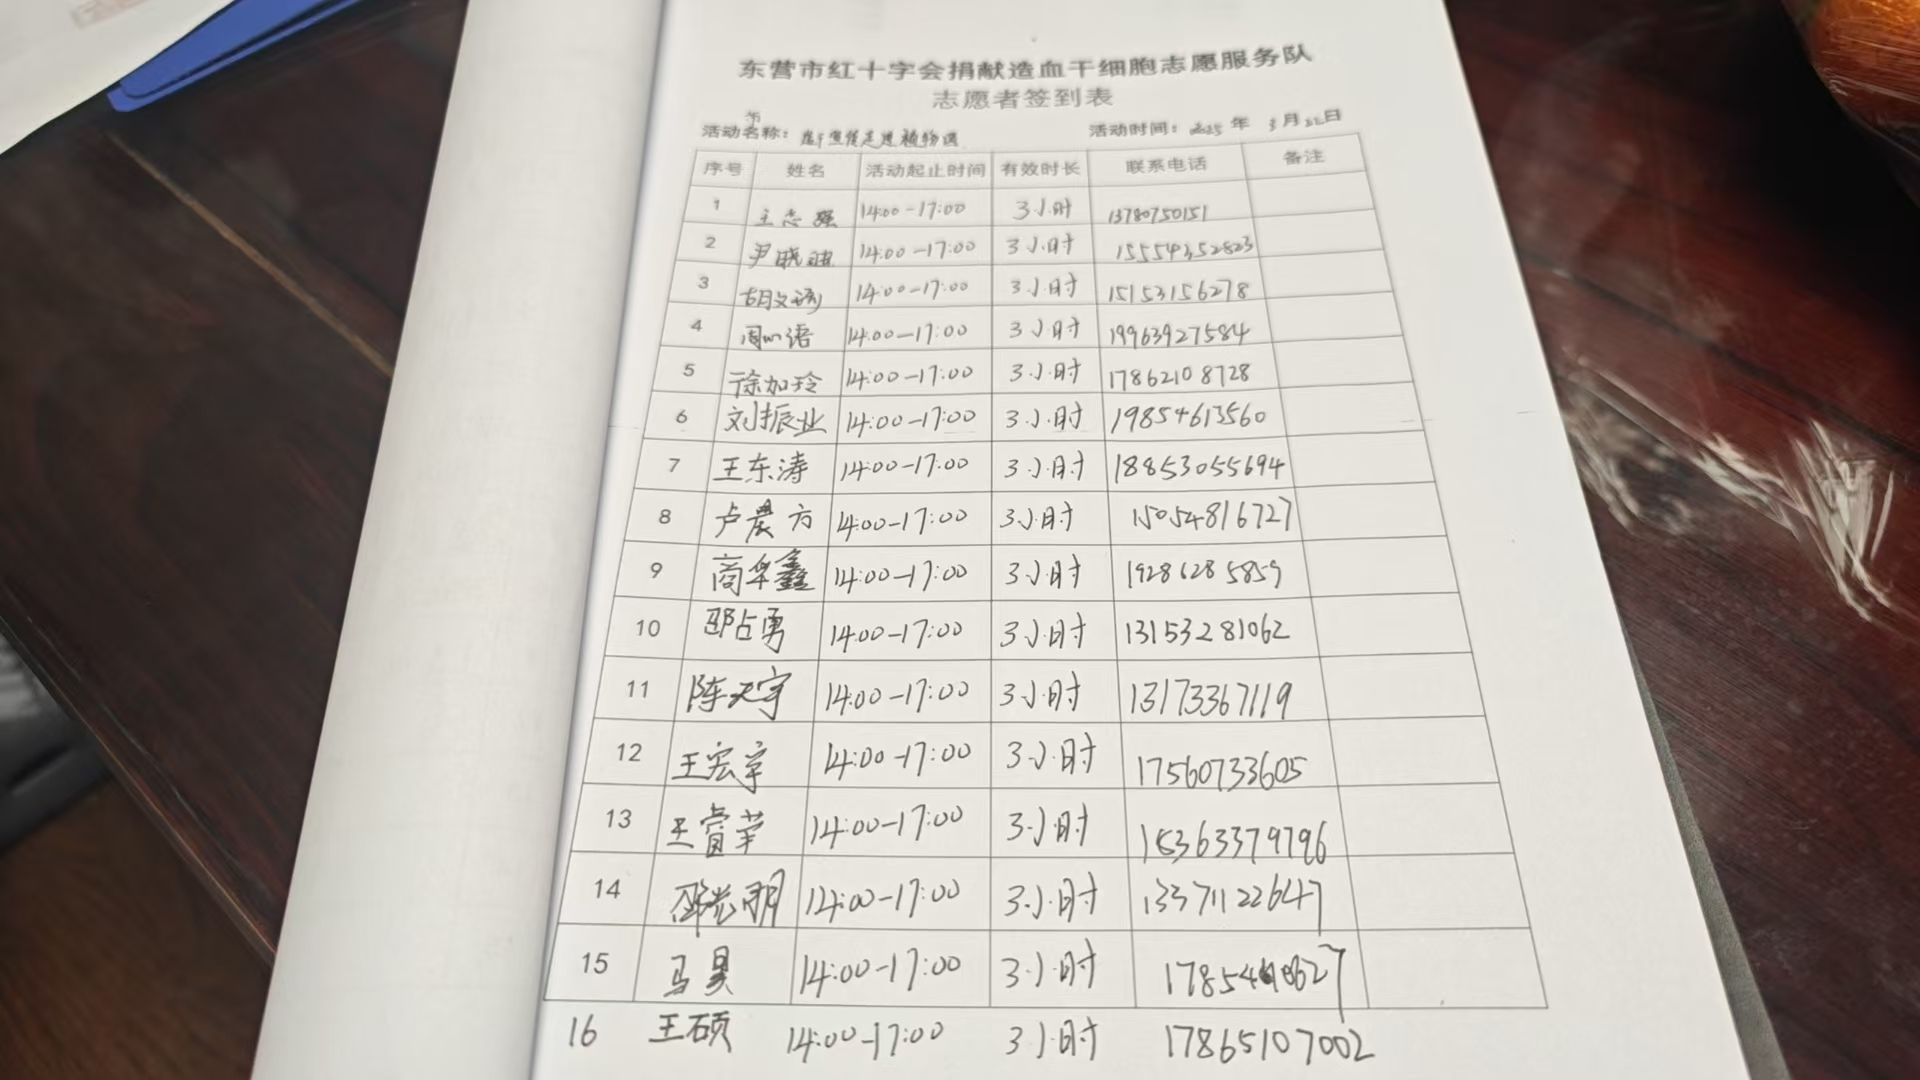 东营市红十字会捐献造血干细胞志愿服务队
志愿者签到表
活动名称： 走进植物园 活动时间：2025年 3月22日
序号 姓名 活动起止时间 有效时长 联系电话 备注
1 王志强 14:00-17:00 3小时 13780750151
2 尹晓迪 14:00-17:00 3小时 15554352823
3 胡文 14:00-17:00 3小时 15153156278
4 周心语 14:00-17:00 3小时 19963927584
5 徐加玲 14:00-17:00 3小时 17862108728
6 刘振业 14:00-17:00 3小时 19854613560
7 王东涛 14:00-17:00 3小时 18853055694
8 卢晨方 14:00-17:00 3小时 15054816727
9 商华鑫 14:00-17:00 3小时 19286285859
10 邵占勇 14:00-17:00 3小时 13153281062
11 陈天宇 14:00-17:00 3小时 13173367119
12 王宏宇 14:00-17:00 3小时 17560733605
13 王 14:00-17:00 3小时 15363379796
14 邵 明 14:00-17:00 3小时 13371122647
15 马昊 14:00-17:00 3小时
16 王硕 14:00-17:00 3小时 17865107002